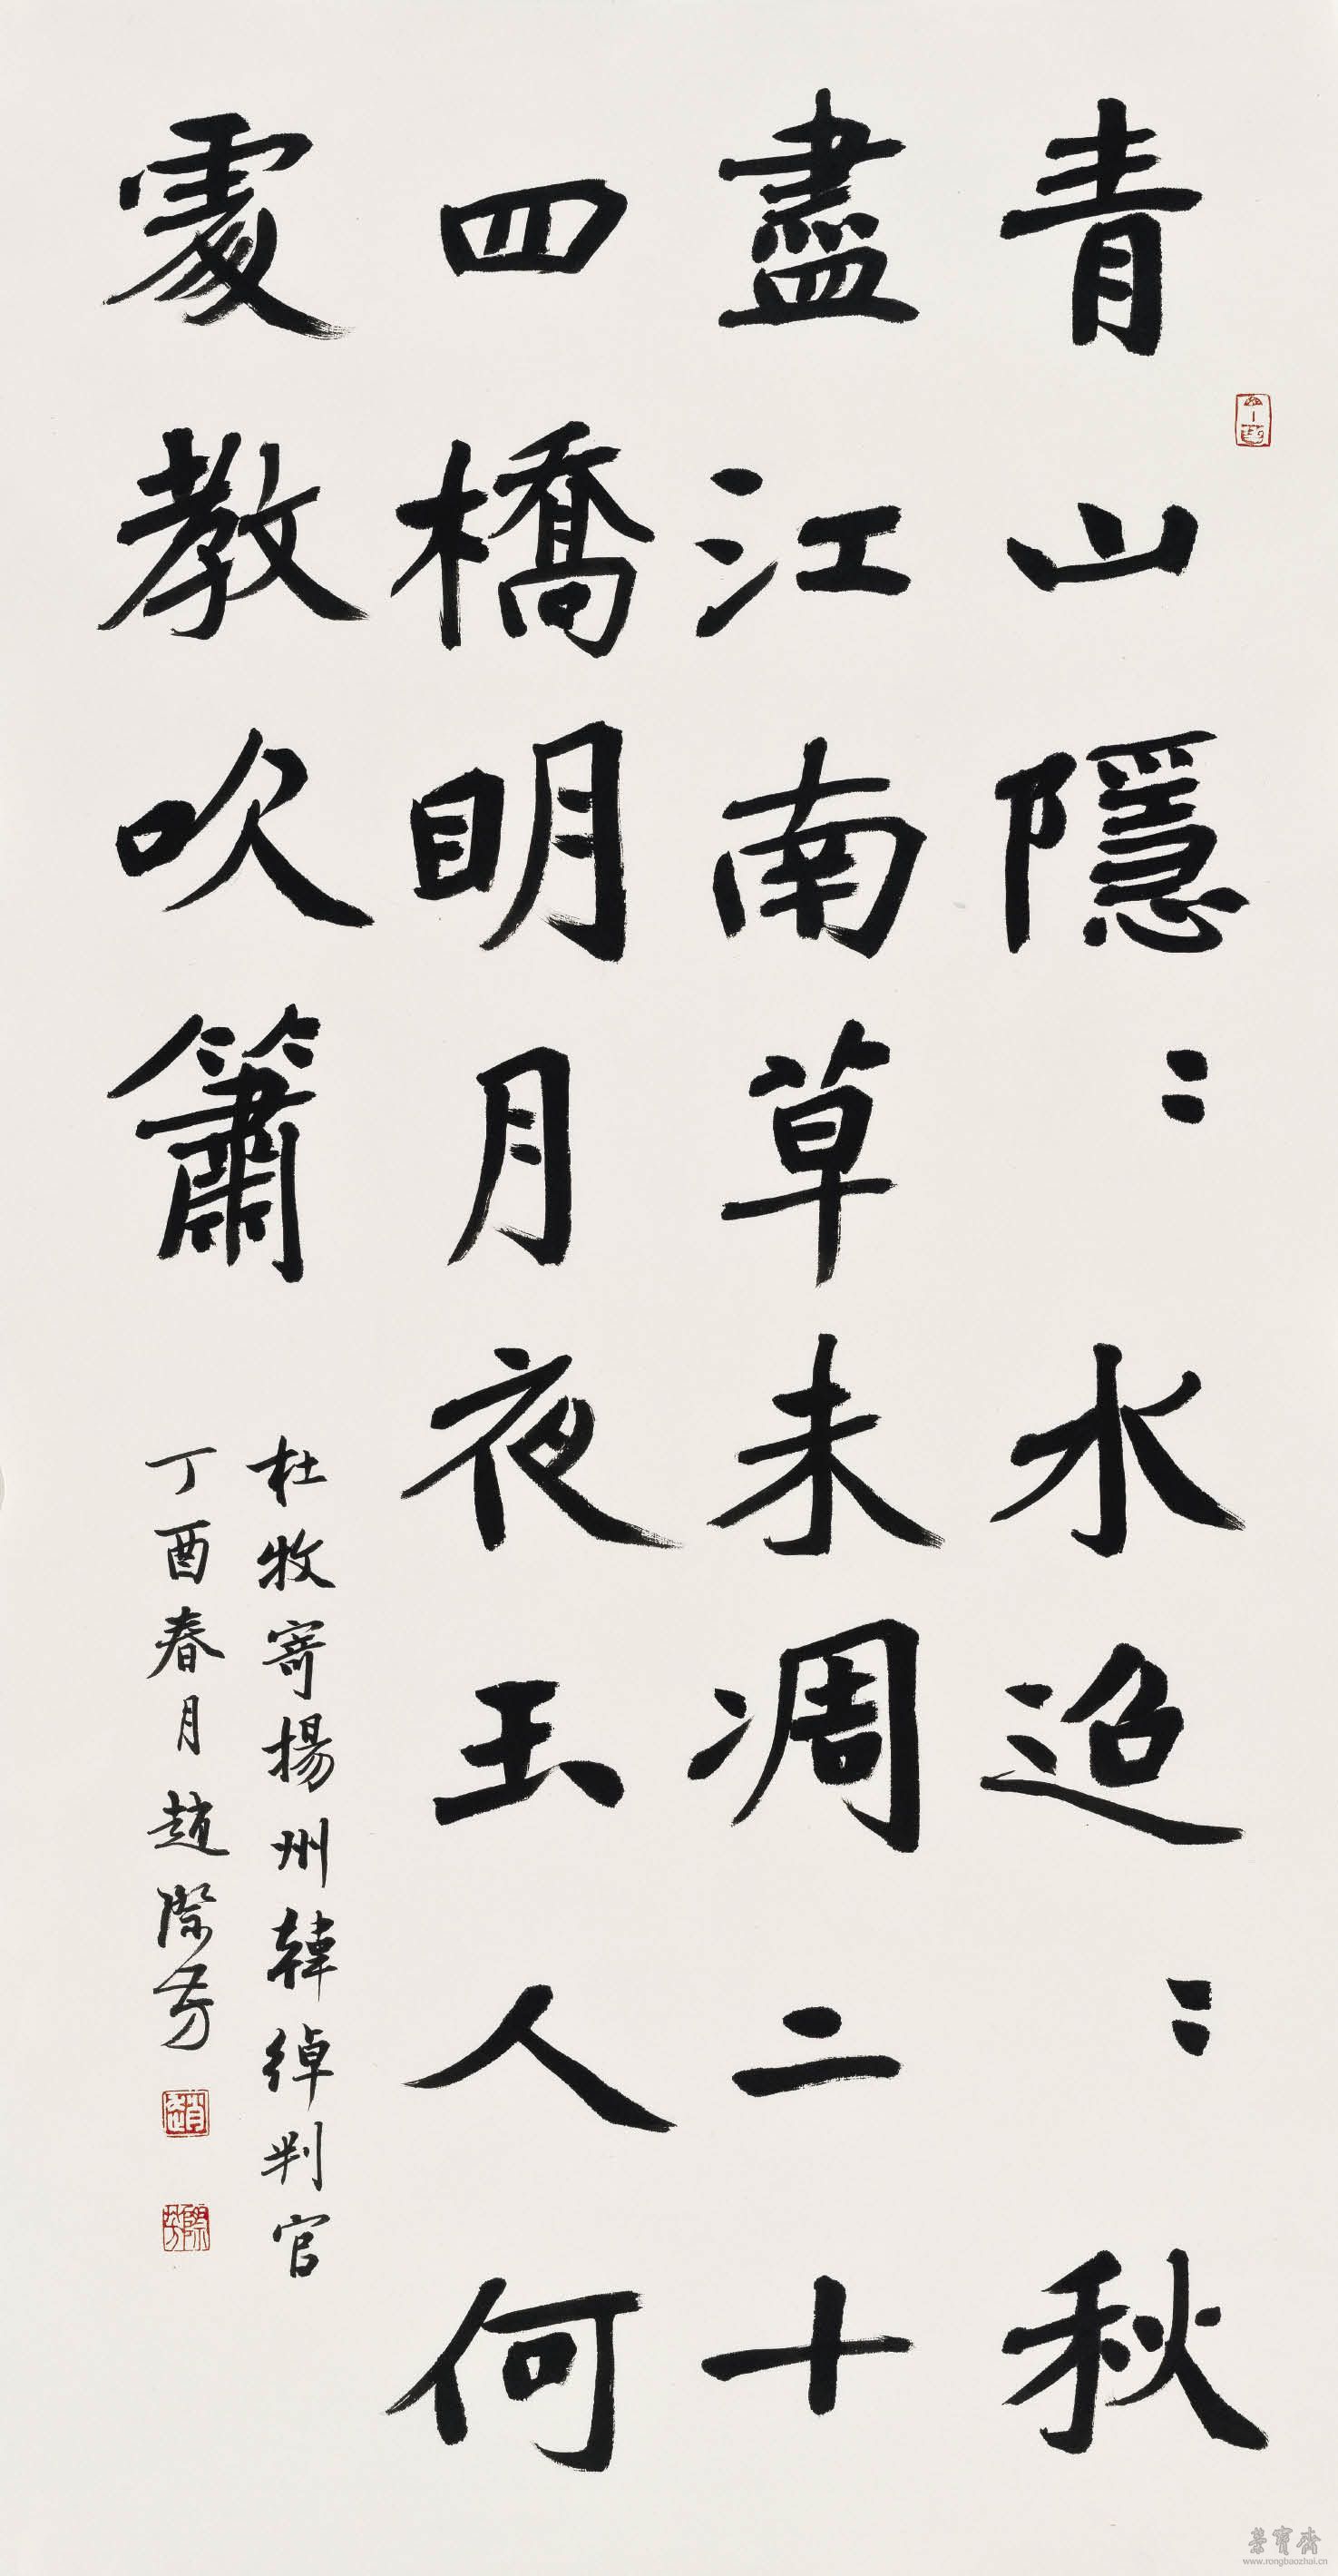 青山隱:水迢:秋
盡江南草未凋二十
四橋明月夜玉人何
處教吹簫
杜牧寄揚州韓綽判官
丁酉春月趙際芳
趙
際芳
榮寶齋
www.rongbaozhai.cn